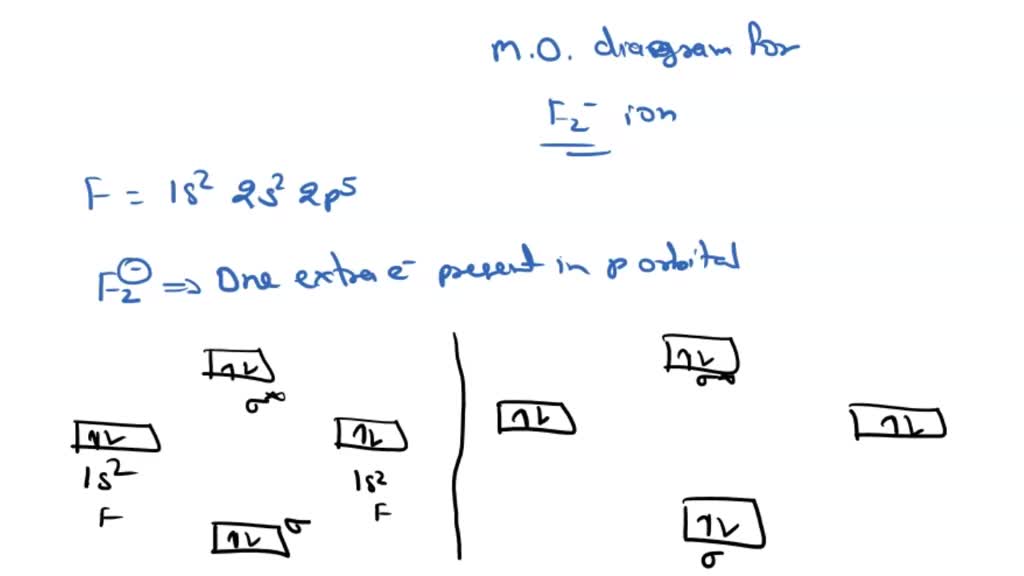 M.O. diagram for
F₂⁻ ion
F = 1s² 2s² 2p⁵
F₂⁻ ⇒ One extra e⁻ present in p orbital
↿⇂ ↿⇂
σ* σ*
↿⇂ ↿⇂ ↿⇂ ↿⇂
1s² 1s²
F F
↿⇂ σ ↿⇂
σ